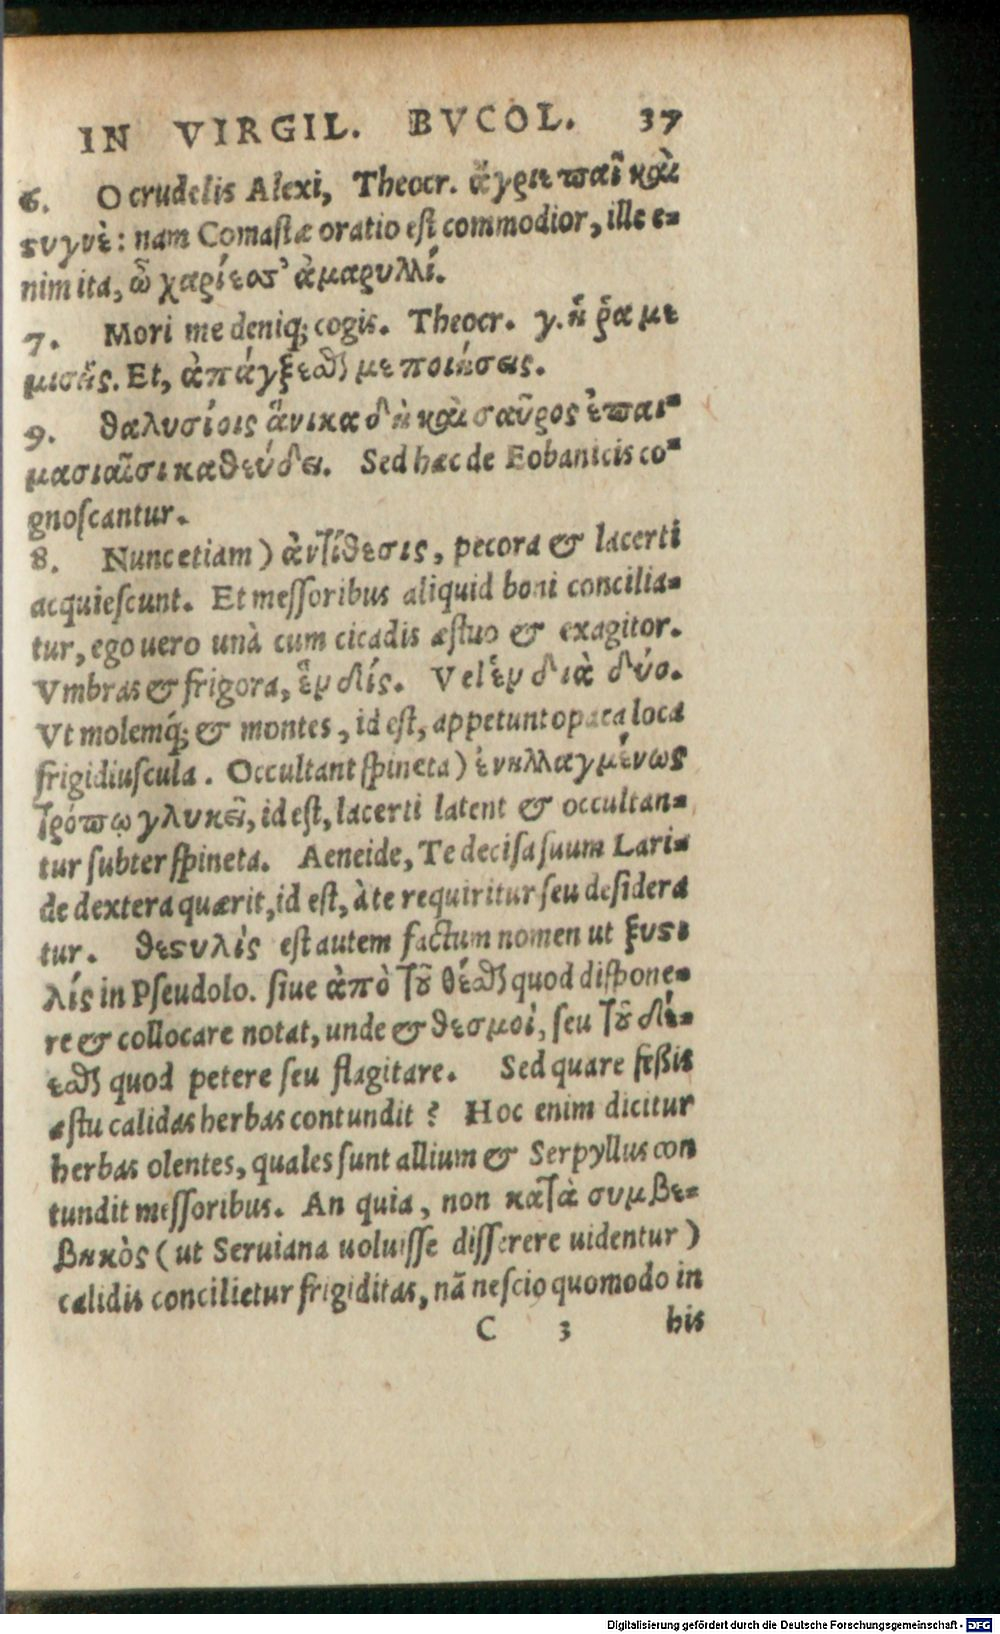 IN VIRGIL. BVCOL. 37
6. O crudelis Alexi, Theocr. ἄγριε παῖ καὶ
ςυγνὲ: nam Comastæ oratio est commodior, ille e-
nim ita, ὦ χαρίεσσ' ἀμαρυλλί.
7. Mori me deniq; cogis. Theocr. γ. ἦ ῥα με
μισῇς. Et, ἀπάγξεσθαι με ποιήσεις.
9. θαλυσίοις ἅνικα δὴ καὶ σαῦρος ἐπαι-
μασιαῖσι καθεύδει. Sed hæc de Eobanicis co-
gnoscantur.
8. Nunc etiam) ἀντίθεσις, pecora & lacerti
acquiescunt. Et messoribus aliquid boni concilia-
tur, ego uero unà cum cicadis æstuo & exagitor.
Vmbras & frigora, ἓν δίς. Vel ἓν διὰ δύο.
Vt molemq́; & montes, id est, appetunt opaca loca
frigidiuscula. Occultant spineta) ἐνηλλαγμένως
τρόπῳ γλυκεῖ, id est, lacerti latent & occultan-
tur subter spineta. Aeneide, Te decisa suum Lari-
de dextera quærit, id est, à te requiritur seu desidera
tur. θεςυλὶς est autem factum nomen ut ξυςι
λίς in Pseudolo. siue ἀπὸ τοῦ θέσθαι quod dispone-
re & collocare notat, unde & θεσμοί, seu τοῦ δίε-
εσθαι quod petere seu flagitare. Sed quare feßis
æstu calidas herbas contundit? Hoc enim dicitur
herbas olentes, quales sunt allium & Serpyllus con
tundit messoribus. An quia, non κατὰ συμβε-
βηκὸς (ut Seruiana uoluisse disserere uidentur)
calidis concilietur frigiditas, nã nescio quomodo in
C 3 his
Digitalisierung gefördert durch die Deutsche Forschungsgemeinschaft - DFG